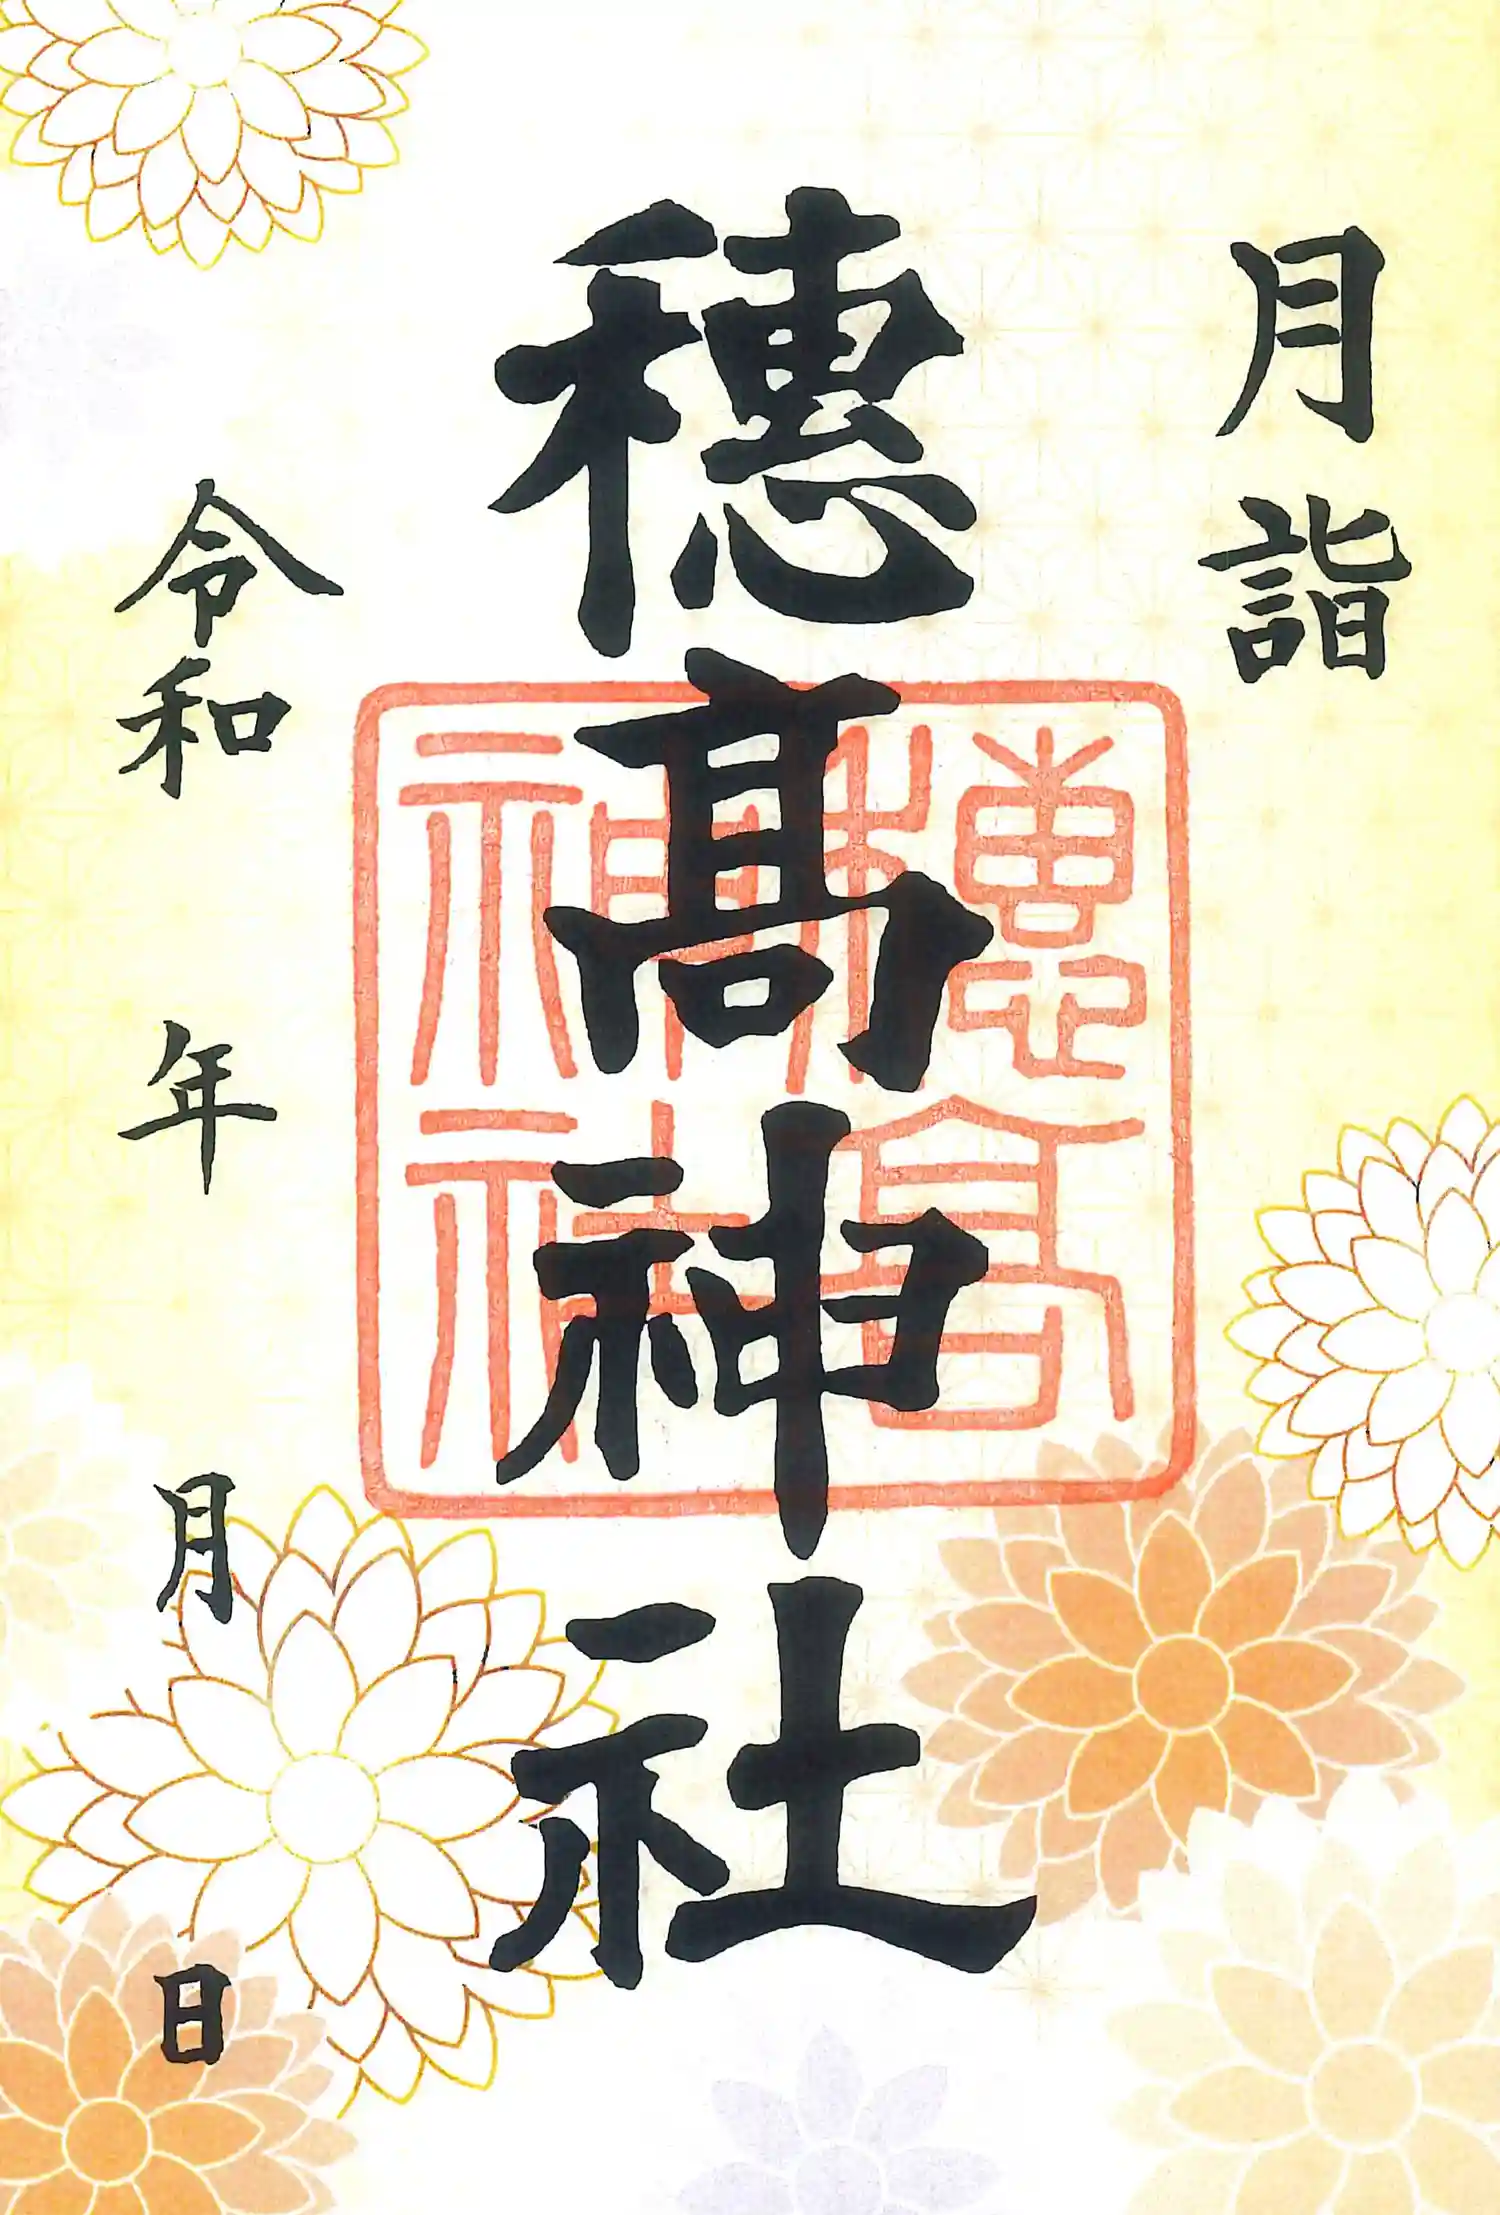 月詣
穂髙神社
穗高
神社
令和 年 月 日